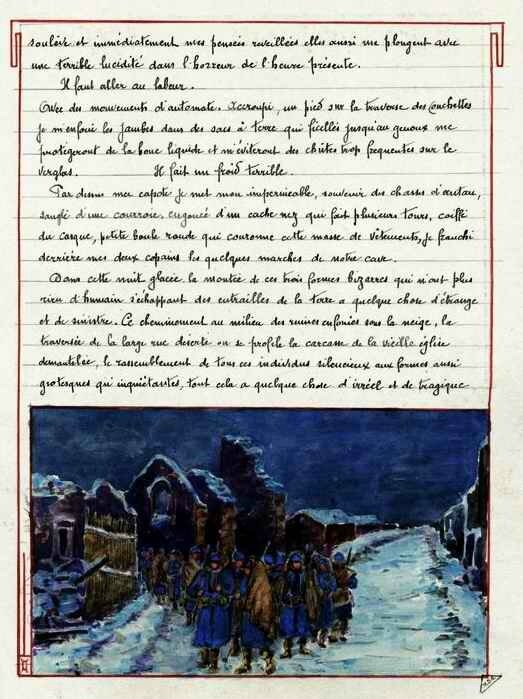 soulève et immédiatement mes pensées reveillées elles aussi me plongent avec
une terrible lucidité dans l'horreur de l'heure présente.
Il faut aller au labeur.
Avec des mouvements d'automate. Accroupi, un pied sur la traverse des couchettes
je m'enfouie les jambes dans des sacs à terre qui ficellés jusqu'au genoux me
protégeront de la boue liquide et m'éviteront des chûtes trop fréquentes sur le
verglas. Il fait un froid terrible.
Par dessus ma capote je met mon imperméable, souvenir des chasses d'antan,
sanglé d'une courroie, engoncé d'un cache nez qui fait plusieurs tours, coiffé
du casque, petite boule ronde qui couronne cette masse de vêtements, je franchi
derrière mes deux copains les quelques marches de notre cave.
Dans cette nuit glacée, la montée de ces trois formes bizarres qui n'ont plus
rien d'humain s'échappant des entrailles de la terre a quelque chose d'étrange
et de sinistre. Ce cheminement au milieu des ruines enfouies sous la neige, la
traversée de la large rue deserte ou se profile la carcasse de la vieille église
démantelée, le rassemblement de tous ces individus silencieux aux formes aussi
grotesques qu'inquiétantes, tout cela a quelque chose d'irréel et de tragique